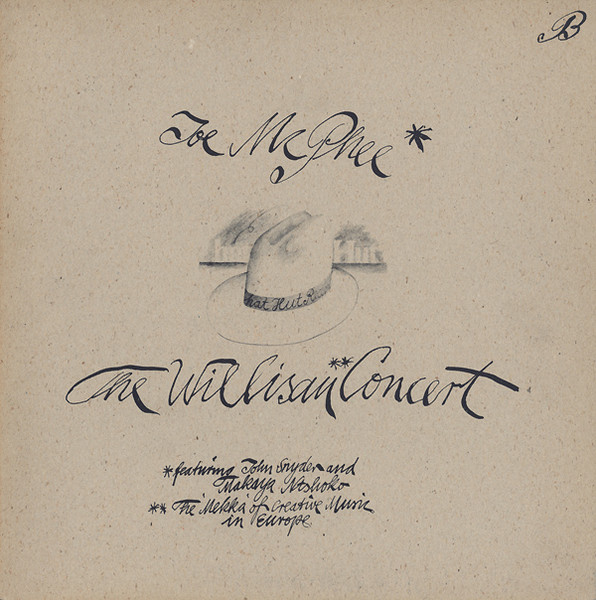 B
Joe Mc Phee*
hat Hut
The Willisau** Concert
*featuring John Snyder and
Makaya Ntshoko
** The 'Mekka' of Creative Music
in Europe